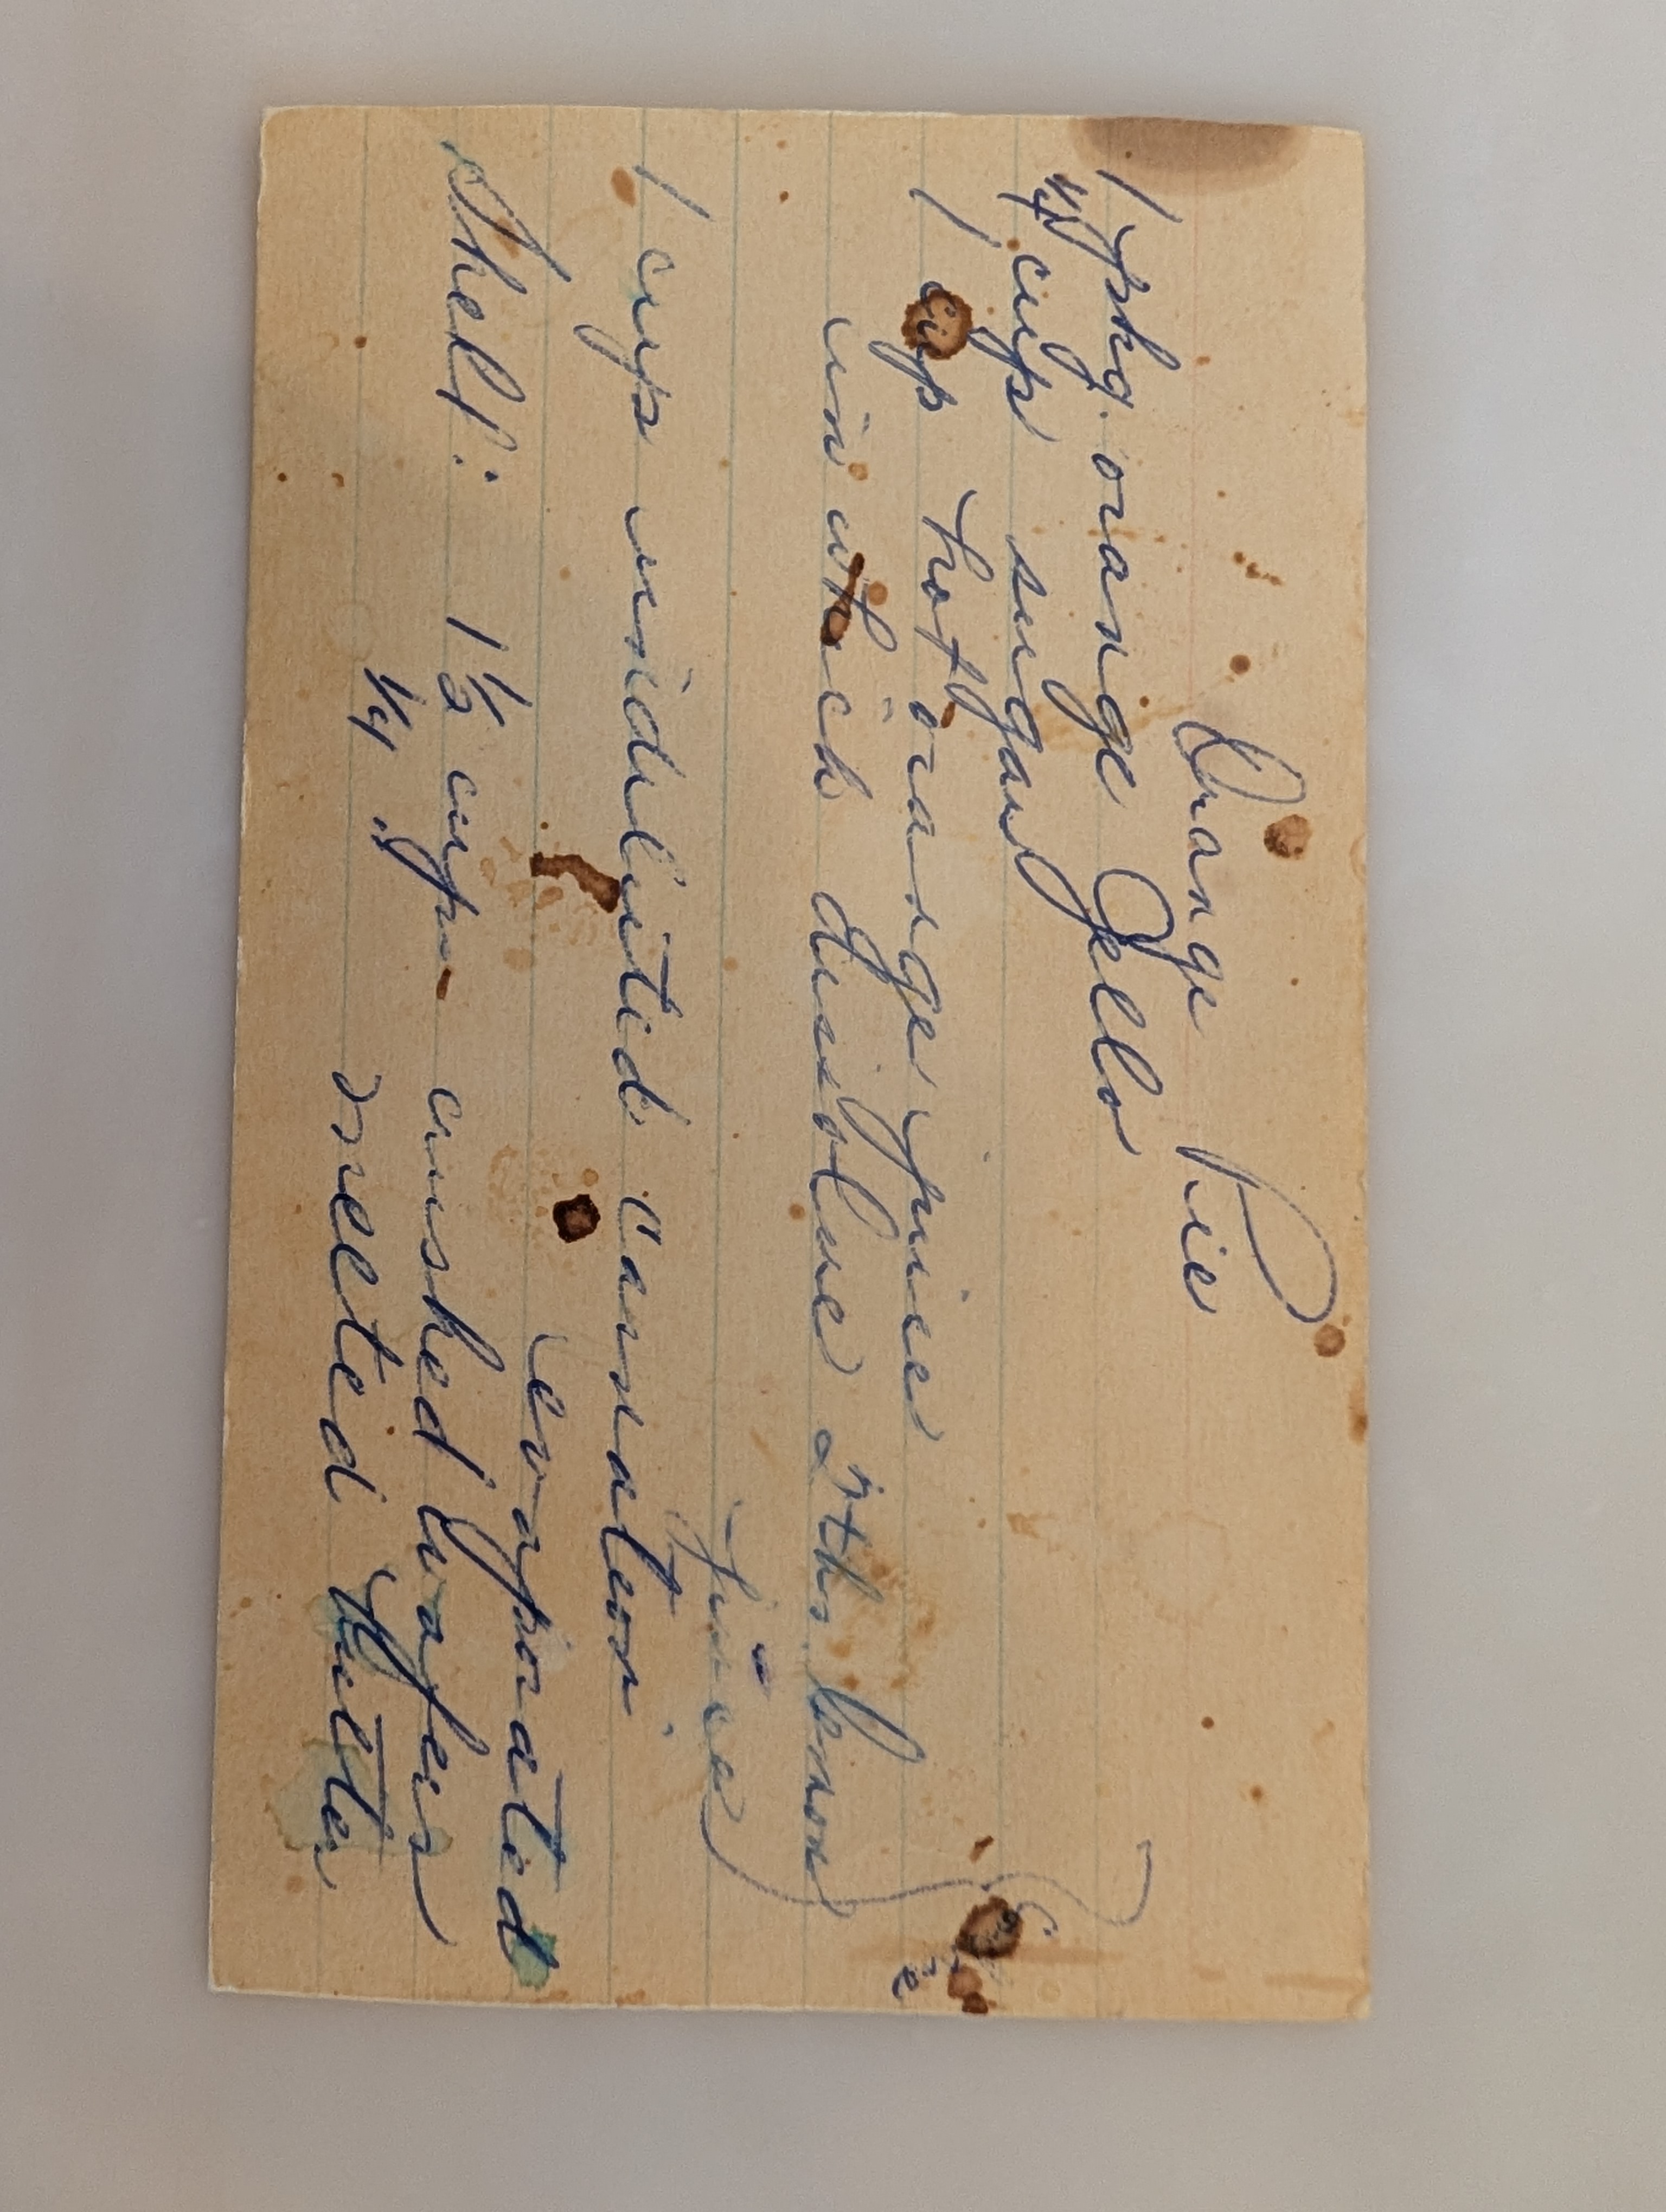 Orange Pie
1 pkg. orange Jello
1/4 cup sugar
1 cup hot orange juice
in which dissolve 2 tbs. lemon
juice
1 cup undiluted carnation
evaporated
Shell: 1 1/2 cups crushed wafers
1/4 " melted butter